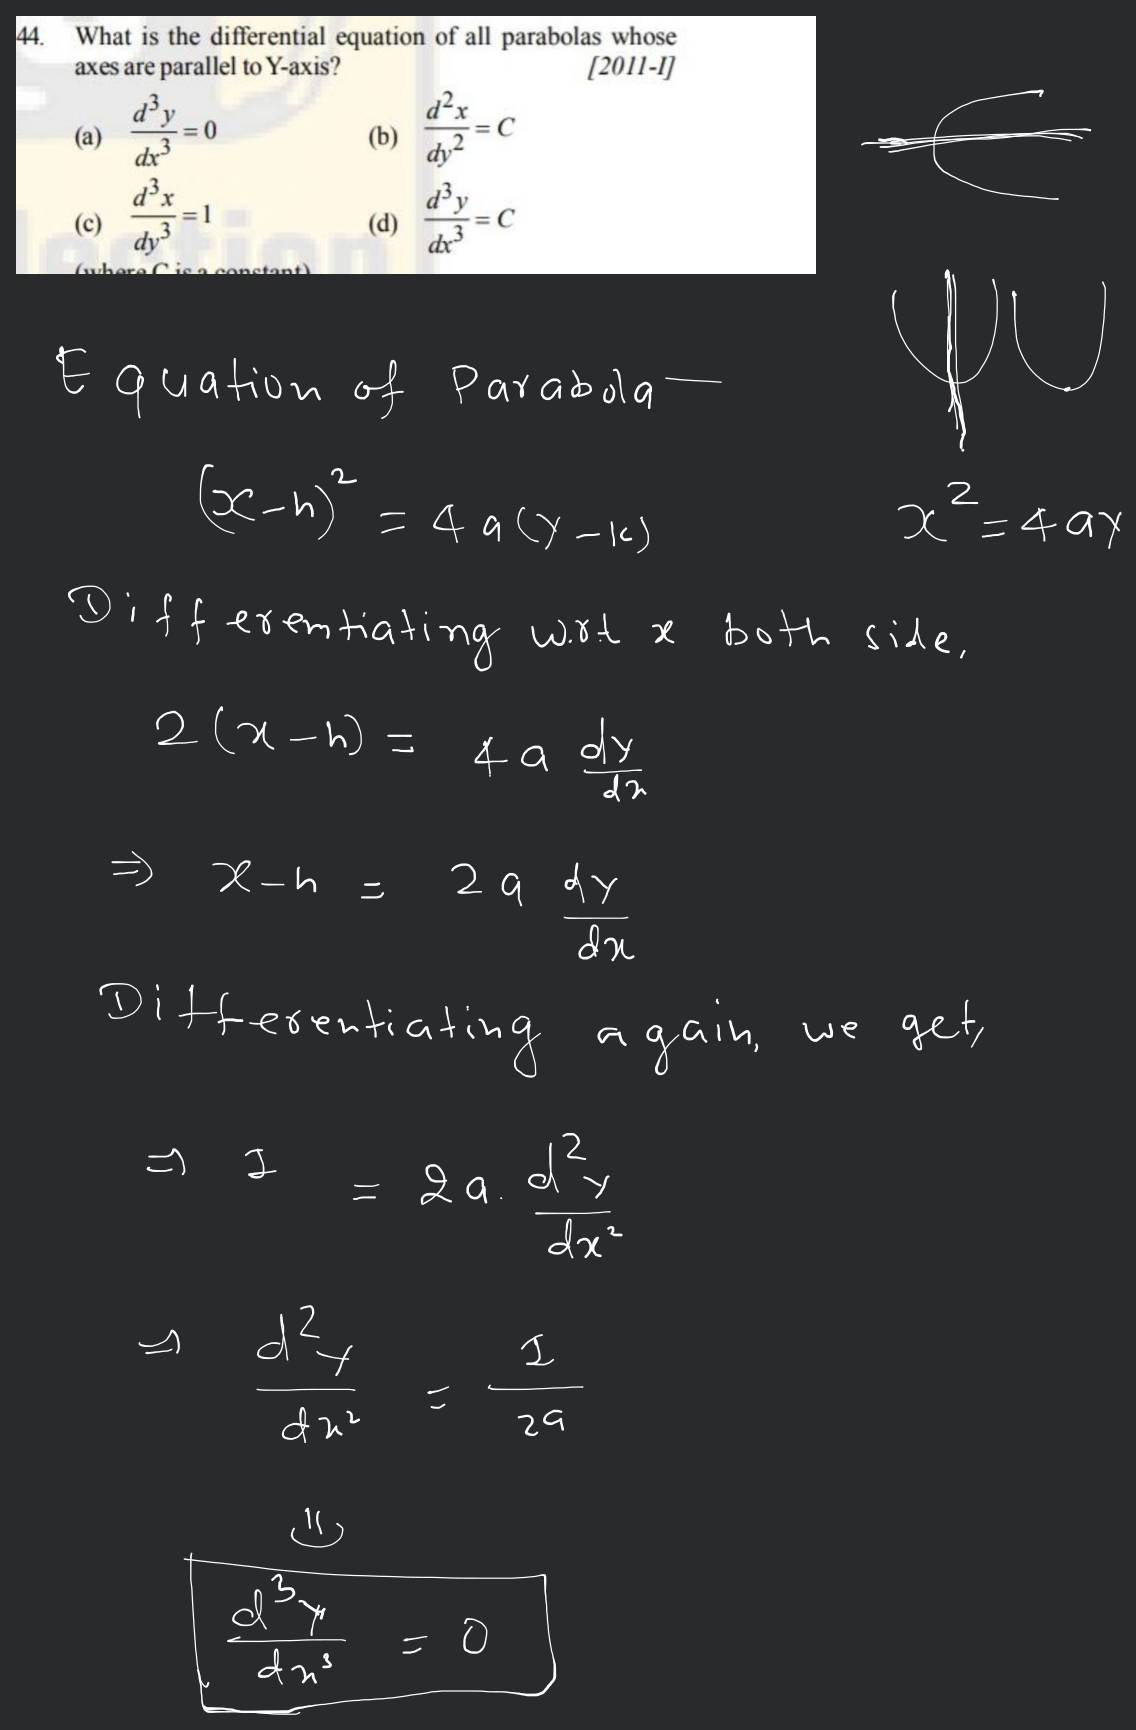 44. What is the differential equation of all parabolas whose
axes are parallel to Y-axis? [2011-I]
(a) d³y/dx³ = 0 (b) d²x/dy² = C
(c) d³x/dy³ = 1 (d) d³y/dx³ = C
(where C is a constant)
Equation of Parabola —
(x-h)² = 4a(y-k)
x² = 4ay
Differemtiating w.r.t x both side,
2(x-h) = 4a dy/dx
⇒ x-h = 2a dy/dx
Differentiating again, we get,
⇒ 1 = 2a. d²y/dx²
⇒ d²y/dx² = 1/2a
d³y/dx³ = 0